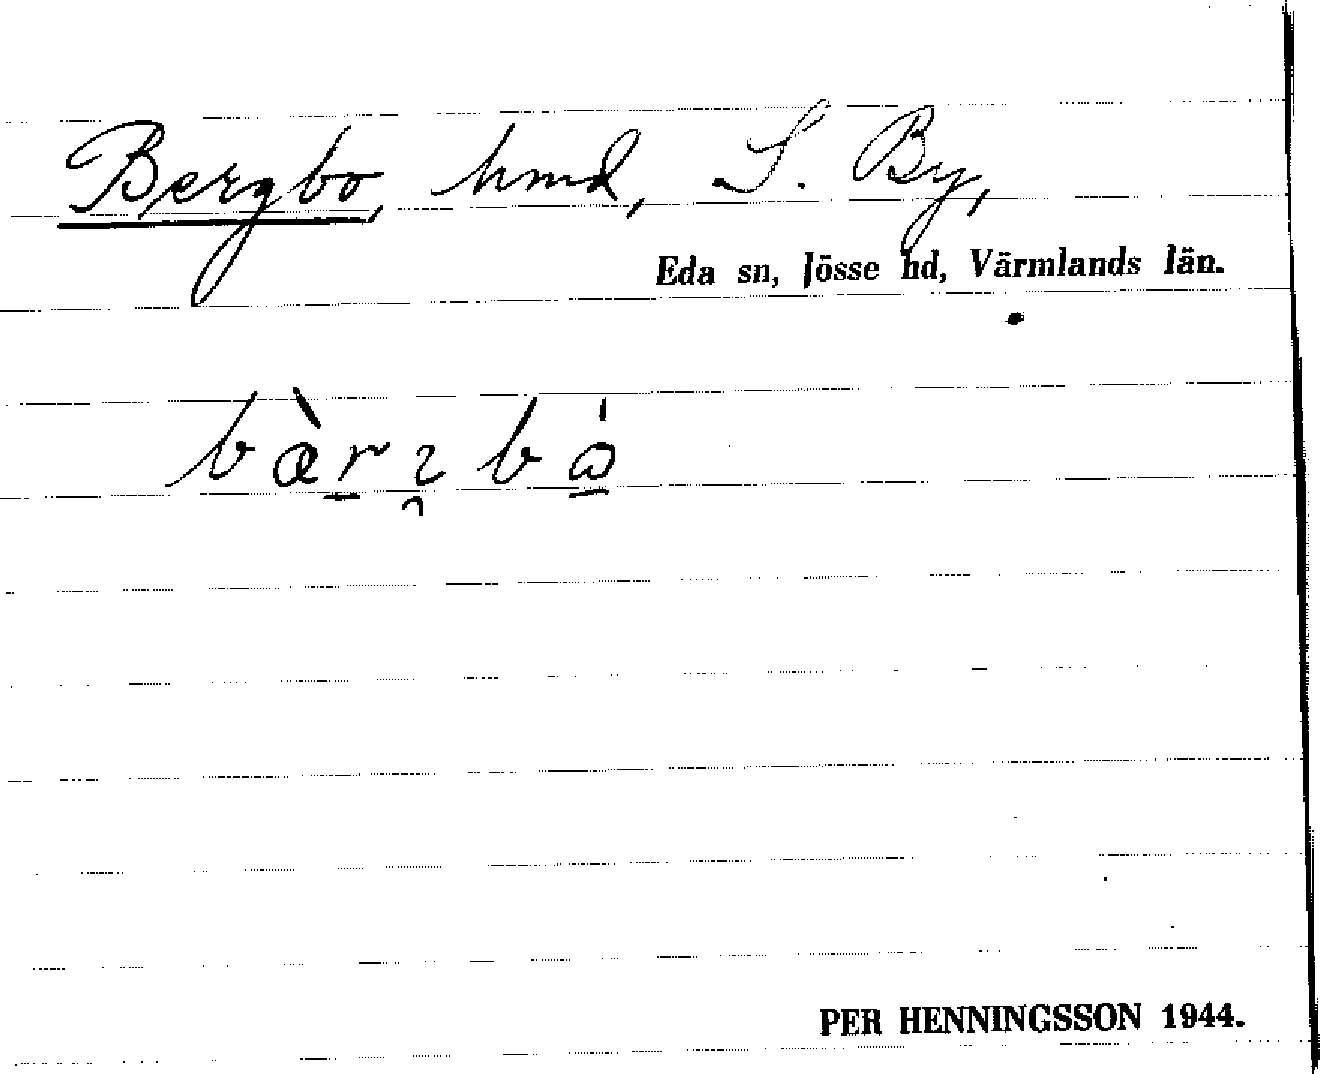 Bergbo, hmd, S. By,
Eda sn, Jösse hd, Värmlands län.
bæ̀r̠ɿ̯bώ̠
PER HENNINGSSON 1944.